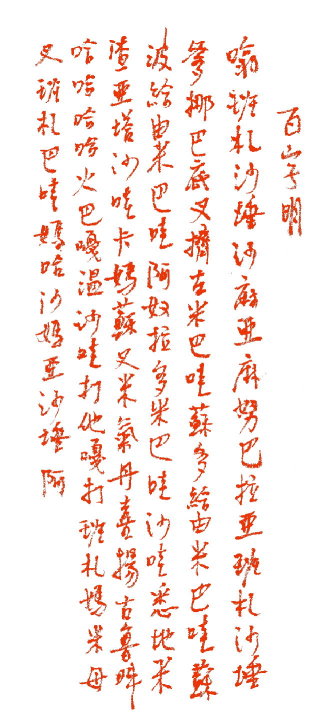 百字明
嗡班札沙埵沙麻亞麻努巴拉亞班札沙埵
爹挪巴底叉擠左米巴哇蘇多給由米巴哇蘇
波給由米巴哇阿奴拉多米巴哇沙哇悉地米
渣亞塔沙哇卡媽蘇叉米氣丹喜揚古魯吽
哈哈哈哈火巴嘎溫沙哇打他嘎打班札媽米毋
叉班札巴哇媽哈沙媽亞沙埵阿